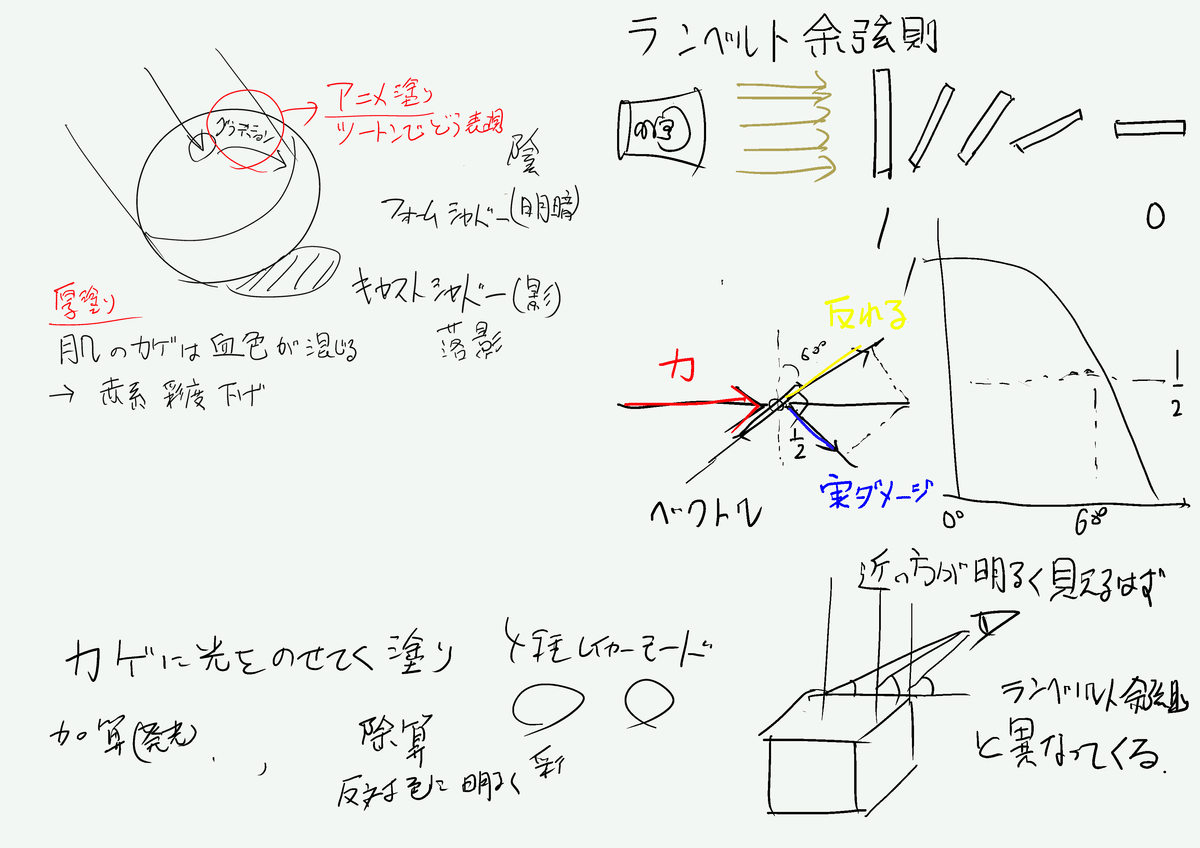 ランベルト余弦則
グラデーション
アニメ塗り
ツートンでどう表現
陰
フォームシャドー(明暗)
キャストシャドー(影)
落影
厚塗り
肌のカゲは血色が混じる
→ 赤系 彩度 下げ
1
0
1
1/2
0°
60°
反れる
60°
力
1/2
実ダメージ
ベクトル
近の方が明るく見えるはず
ランベルト余弦則
と異なってくる.
カゲに光をのせてく塗り
レイヤーモード
加算(発光)
除算
反対色に明るく
彩